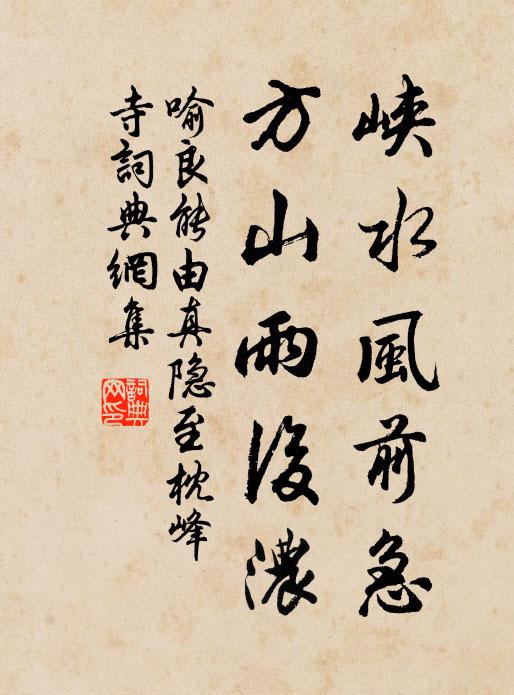 峡水風前急
方山雨後濃
喻良能由真隐至枕峰
寺詞典網集
詞典网印